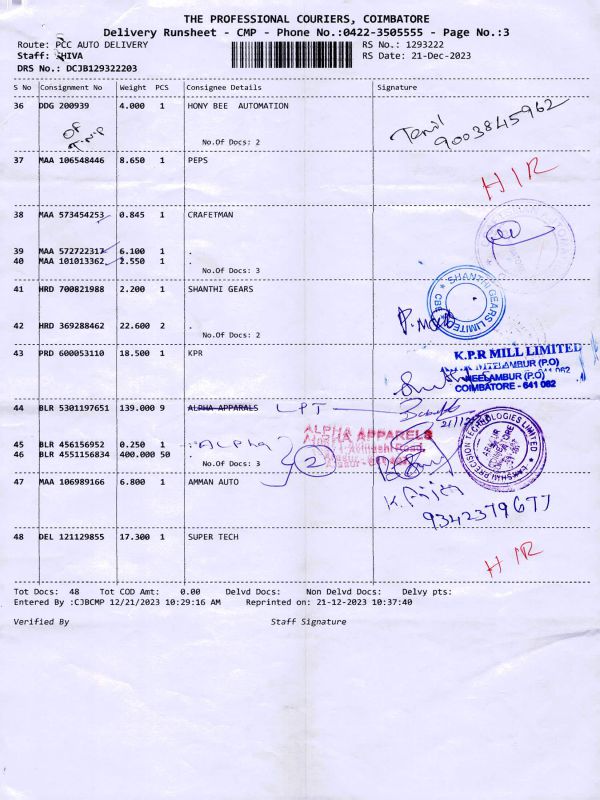 THE PROFESSIONAL COURIERS, COIMBATORE
Delivery Runsheet - CMP - Phone No.:0422-3505555 - Page No.:3
Route: PCC AUTO DELIVERY RS No.: 1293222
Staff: SHIVA RS Date: 21-Dec-2023
DRS No.: DCJB129322203
S No Consignment No Weight PCS Consignee Details Signature
36 DDG 200939 4.000 1 HONY BEE AUTOMATION
9003845962
No.Of Docs: 2
37 MAA 106548446 8.650 1 PEPS
HIR
38 MAA 573454253 0.845 1 CRAFETMAN
39 MAA 572722317 6.100 1 .
40 MAA 101013362 2.550 1 .
No.Of Docs: 3
41 HRD 700821988 2.200 1 SHANTHI GEARS
SHANTHI GEARS LIMITED CBE
42 HRD 369288462 22.600 2 .
No.Of Docs: 2
43 PRD 600053110 18.500 1 KPR
K.P.R MILL LIMITED
NEELAMBUR (P.O)
COIMBATORE - 641 062
44 BLR 5301197651 139.000 9 ALPHA APPARALS LPT
ALPHA APPARELS
LAKSHMI PRECISION TECHNOLOGIES LIMITED
45 BLR 456156952 0.250 1 . Alpha
46 BLR 4551156834 400.000 50 .
No.Of Docs: 3
2
47 MAA 106989166 6.800 1 AMMAN AUTO
9342379677
48 DEL 121129855 17.300 1 SUPER TECH
HIR
Tot Docs: 48 Tot COD Amt: 0.00 Delvd Docs: Non Delvd Docs: Delvy pts:
Entered By :CJBCMP 12/21/2023 10:29:16 AM Reprinted on: 21-12-2023 10:37:40
Verified By Staff Signature